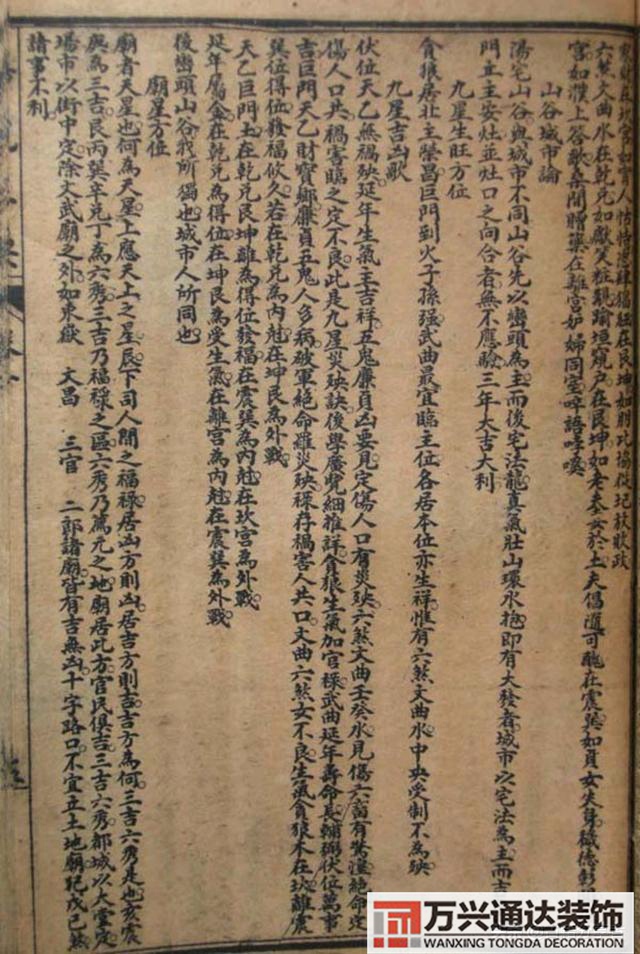 六煞文曲水在乾兌如獻笑粧親踰垣窺戶在艮坤如老
山谷城市論
陽宅山谷與城市不同山谷先以巒頭為主而後宅法龍真氣壯山環水抱即有大發者城市以宅法為主而吉
門立主安灶並灶口之向合者無不應驗三年大吉大利
九星生旺方位
貪狼居北主榮昌巨門到火子孫强武曲最宜臨主位各居本位亦生祥惟有六煞文曲水中央受制不為殃
九星吉凶歌
伏位天乙無禍殃延年生氣主吉祥五鬼廉貞凶要見定傷人口有災殃六煞文曲壬癸水見傷六畜有驚遑絕命定
傷人口共禍害臨之定不良此是九星災殃訣後學廣覽細推詳貪狼生氣加官祿武曲延年壽命長輔弼伏位萬事
吉巨門天乙財寶鄉廉貞五鬼人多病破軍絕命罹災殃祿存禍害人共口文曲六煞女不良生氣貪狼木在坎離震
巽位得位發福攸久若在乾兌為內尅在坤艮為外戰
天乙巨門土在乾兌艮坤離為得位發福在震巽為內尅在坎宮為外戰
延年屬金在乾兌為得位在坤艮為受生氣在離宮為內尅在震巽為外戰
後巒頭山谷我所獨也城市人所同也
廟星方位
廟者天星也何為天星上應天上之星辰下司人間之福祿居凶方則凶居吉方則吉吉方為何三吉六秀是也亥震
庚為三吉艮丙巽辛兌丁為六秀三吉乃福祿之區六秀乃薦元之地廟居此方官民俱吉三吉六秀都城以大堂定
場市以街中定除文武廟之外如東嶽 大昌 三官 二郎諸廟皆有吉無凶十字路口不宜立土地廟犯戊已煞
諸事不利
万兴通达装饰
WANXING TONGDA DECORATION